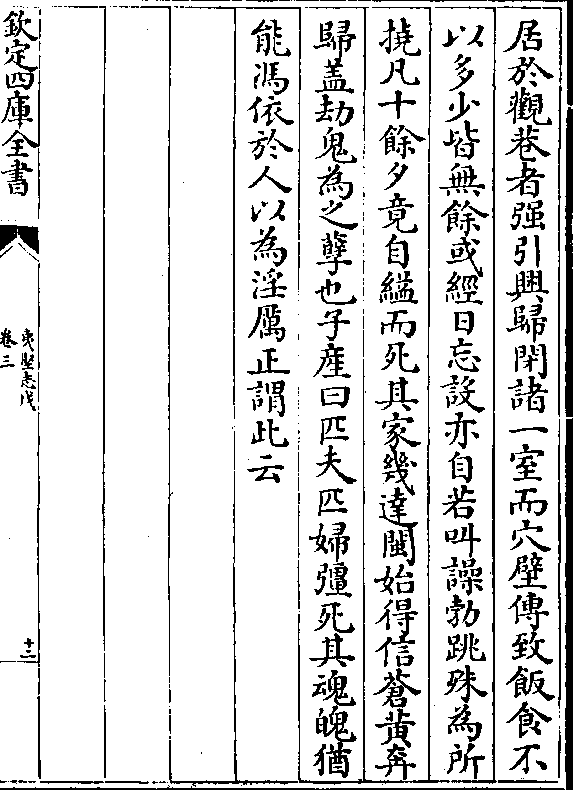 居於觀巷者强引與歸閉諸一室而穴壁傳致飯食不
以多少皆無餘或經日忘設亦自若叫譟勃跳殊為所
撓凡十餘夕竟自縊而死其家幾達閩始得信蒼黄奔
歸盖劫鬼為之孽也子産曰匹夫匹婦彊死其魂魄猶
能馮依於人以為淫厲正謂此云
欽定四庫全書
夷堅志戊
卷三
十二